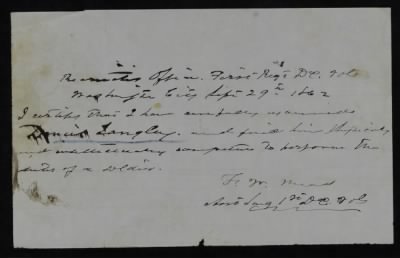 Recruiting Office. First Regt D.C. Vols
Washington City Sept 29th 1862
I certify that I have carefully examined
Francis Langley. and find him physically
and intellectually competent to perform the
duties of a soldier.
F. W. Mead
Asst Surg 1st D.C. Vols